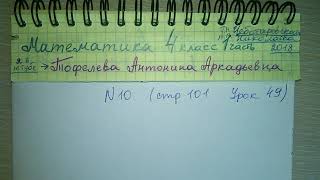 Математика 4 класс 1 часть 2018
Тофелева Антонина Аркадьевна
N10 (стр 101 Урок 49)